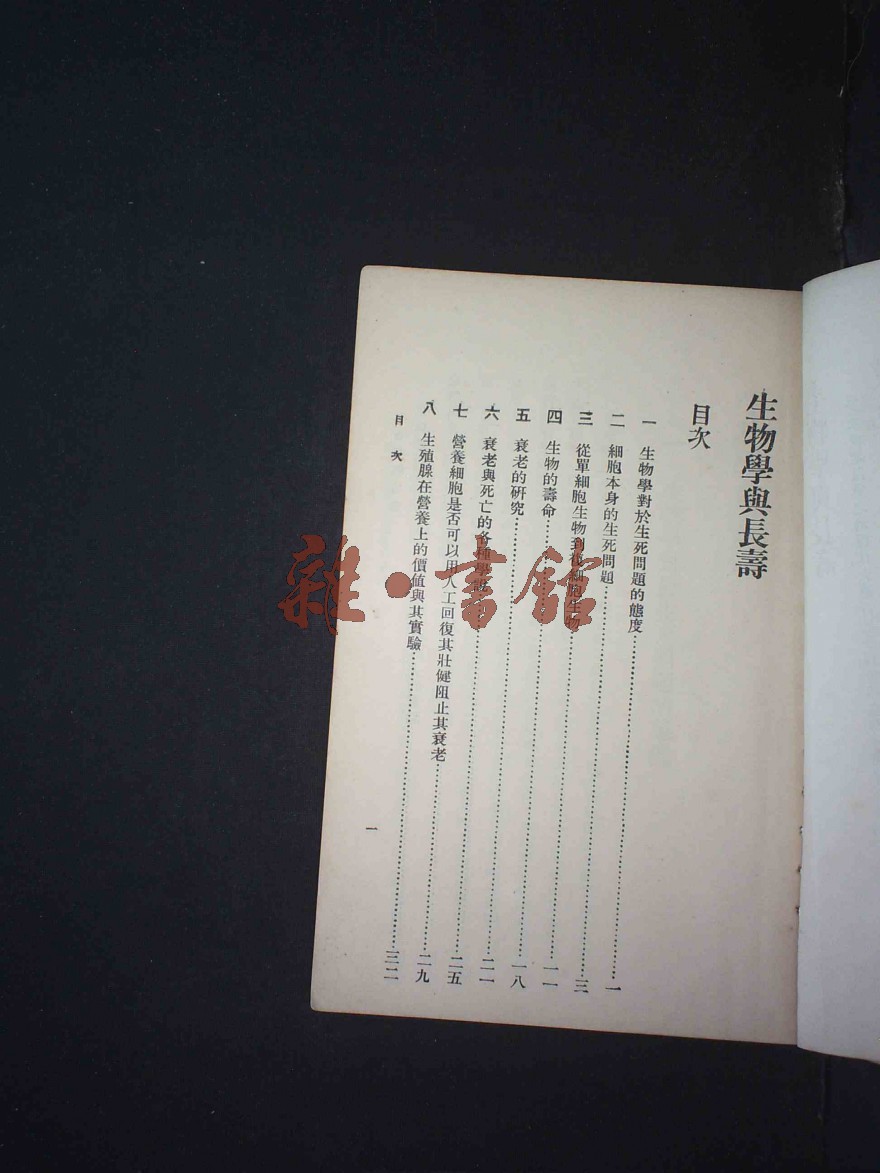 生物學與長壽
目次
一 生物學對於生死問題的態度……一
二 細胞本身的生死問題……三
三 從單細胞生物到複細胞生物……一一
四 生物的壽命……一八
五 衰老的研究……二一
六 衰老與死亡的各種學說……二五
七 營養細胞是否可以用人工回復其壯健阻止其衰老……二九
八 生殖腺在營養上的價值與其實驗……三二
目次
一
雜·書館